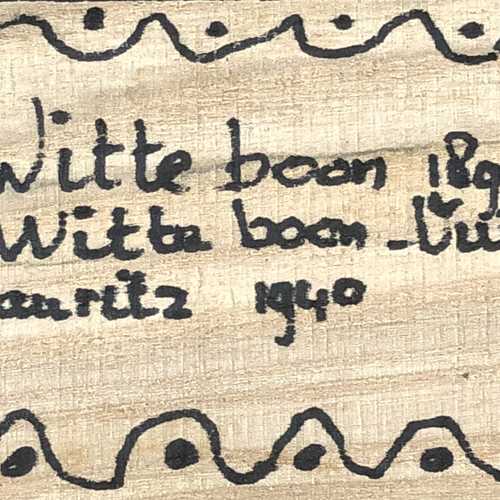 Witte boon 189
Witte boon - Lui
auritz 1940